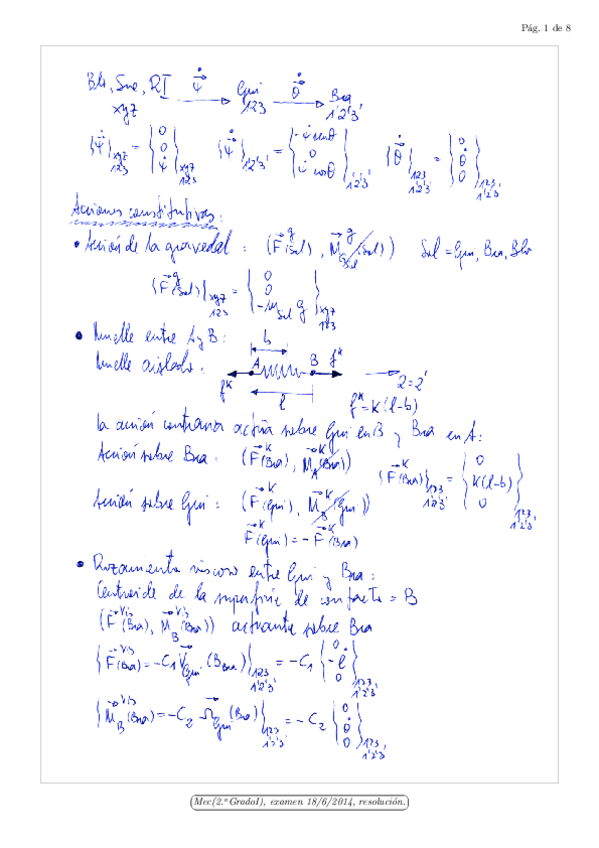 Pág. 1 de 8
Blo, Sue, RI —ψ̇→ Gui —θ̇→ Bra
xyz 123 1'2'3'
{ψ̇}xyz 123 = {0 0 ψ̇}xyz 123 {ψ̇}1'2'3' = {-ψ̇ senθ 0 ψ̇ cosθ}1'2'3' {θ̇}123 1'2'3' = {0 θ̇ 0}123 1'2'3'
Acciones constitutivas:
• Acción de la gravedad : (F^g(Sol), M^g_GSol(Sol)) Sol = Gui, Bra, Blo
{F^g(Sol)}xyz 123 = {0 0 -m_Sol g}xyz 123
• Muelle entre A y B:
Muelle aislado:
b
A B f^k
f^k l 2=2'
f^k=K(l-b)
la acción contraria actúa sobre Gui en B y Bra en A:
Acción sobre Bra : (F^K(Bra), M^K_A(Bra)) {F^K(Bra)}123 1'2'3' = {0 K(l-b) 0}123 1'2'3'
Acción sobre Gui : (F^K(Gui), M^K_B(Gui))
F^K(Gui) = - F^K(Bra)
• Rozamiento viscoso entre Gui y Bra:
Centroide de la superficie de contacto = B
(F^vis(Bra), M^vis_B(Bra)) actuante sobre Bra
{F^vis(Bra) = -C1 V_Gui(B_Bra)}123 1'2'3' = -C1 {0 -l̇ 0}123 1'2'3'
{M^vis_B(Bra) = -C2 Ω_Gui(Bra)}123 1'2'3' = -C2 {0 θ̇ 0}123 1'2'3'
Mec(2.º GradoI), examen 18/6/2014, resolución.